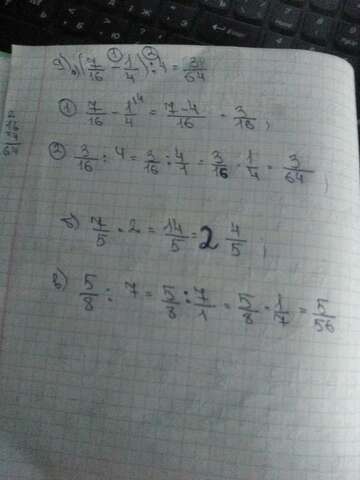 ① ②
(7/16 - 1/4) : 4 = 3/64
① 7/16 - 1/4 \4 = 7-4/16 = 3/16 ;
② 3/16 : 4 = 3/16 : 4/1 = 3/16 · 1/4 = 3/64 ;
б) 7/5 · 2 = 14/5 = 2 4/5 ;
в) 5/8 : 7 = 5/8 : 7/1 = 5/8 · 1/7 = 5/56